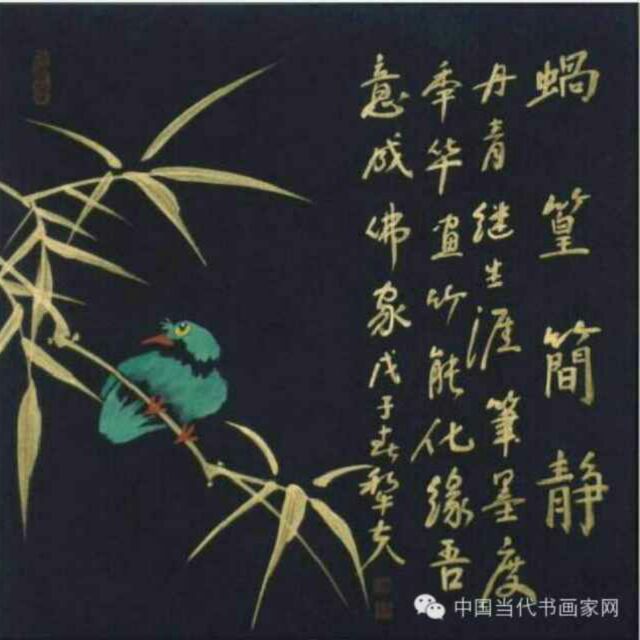 蝸篁簡静
丹青继生涯筆墨度
年华画竹能化缘吾
意成佛家戊子春犂夫
中国当代书画家网